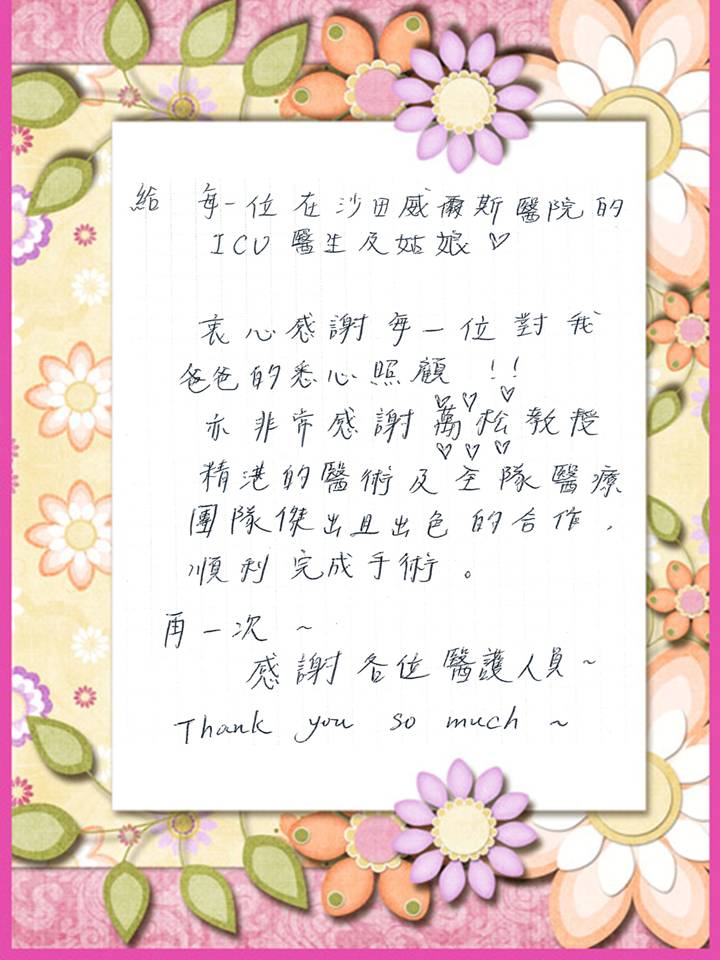 給 每一位在沙田威爾斯醫院的
ICU 醫生及姑娘♡
衷心感謝每一位對我
爸爸的悉心照顧 !!
亦非常感謝萬松教授
精港的醫術及全隊醫療
團隊傑出且出色的合作,
順利完成手術。
再一次 ~
感謝各位醫護人員~
Thank you so much ~